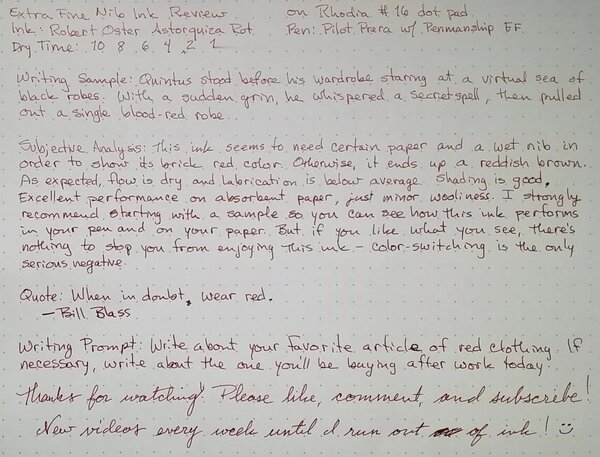 Extra Fine Nib Ink Review on Rhodia #16 dot pad.
Ink: Robert Oster Astorquiza Rot Pen: Pilot Prera w/ Penmanship EF
Dry Time: 10 8 6 4 2 1
Writing Sample: Quintus stood before his wardrobe staring at a virtual sea of
black robes. With a sudden grin, he whispered a secret spell, then pulled
out a single blood-red robe.
Subjective Analysis: This ink seems to need certain paper and a wet nib in
order to show its brick red color. Otherwise, it ends up a reddish brown.
As expected, flow is dry and lubrication is below average. Shading is good.
Excellent performance on absorbent paper, just minor wooliness. I strongly
recommend starting with a sample so you can see how this ink performs
in your pen and on your paper. But if you like what you see, there's
nothing to stop you from enjoying this ink - color-switching is the only
serious negative.
Quote: When in doubt, wear red.
- Bill Blass
Writing Prompt: Write about your favorite article of red clothing. If
necessary, write about the one you'll be buying after work today.
Thanks for watching! Please like, comment, and subscribe!
New videos every week until I run out of ink!